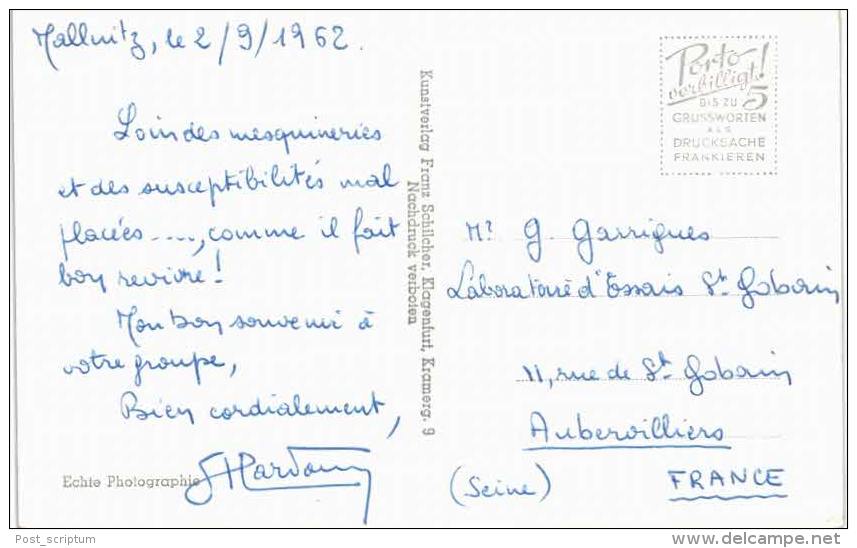 Mallnitz, le 2/9/1962.
Loin des mesquineries
et des susceptibilités mal
placées...., comme il fait
bon revivre!
Mon bon souvenir à
votre groupe,
Bien cordialement,
Echte Photographie
Kunstverlag Franz Schilcher, Klagenfurt, Kramerg. 9
Nachdruck verboten
Porto
verbilligt!
BIS ZU 5
GRUSSWORTEN
ALS
DRUCKSACHE
FRANKIEREN
Mr G. Garrigues
Laboratoire d'Essais St Gobain
11, rue de St Gobain
Aubervilliers
(Seine) FRANCE
Post_scriptum
delcampe.net